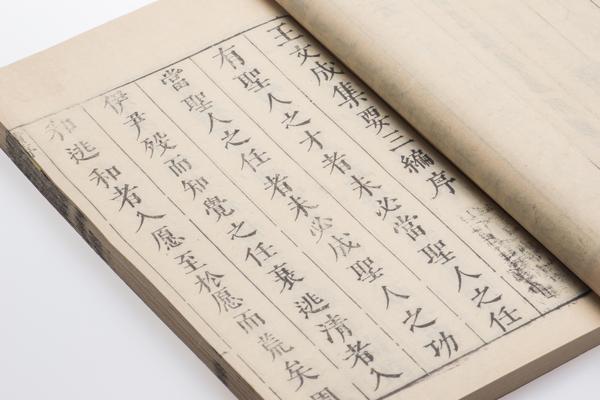 王文成集要三編序
有聖人之才者未必當聖人之任
當聖人之任者未必成聖人之功
伊尹歿而知覺之任衰逃清者入
和逃和者入愿至於愿而荒矣周